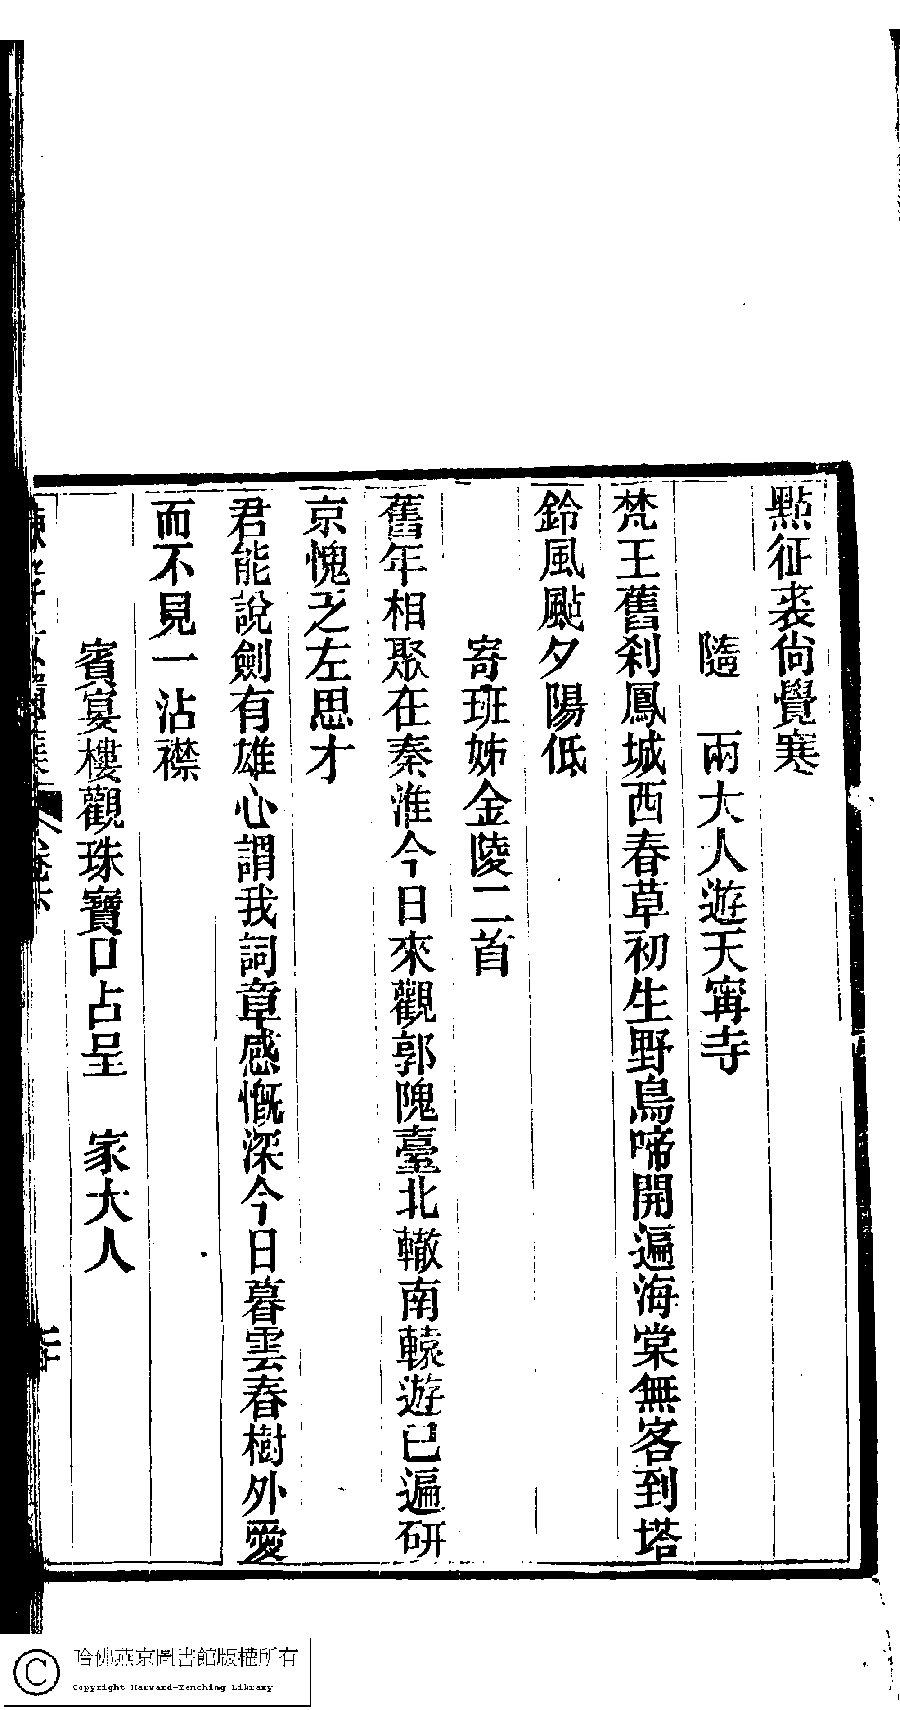 點征裘尙覺寒
隨　兩大人遊天甯寺
梵王舊刹鳳城西春草初生野鳥啼開遍海棠無客到塔
鈴風颭夕陽低
寄班姊金陵二首
舊年相聚在秦淮今日來觀郭隗臺北轍南轅遊已遍研
京愧乏左思才
君能說劍有雄心謂我詞章感慨深今日暮雲春樹外愛
而不見一沾襟
賓宴樓觀珠寶口占呈　家大人
哈佛燕京圖書館版權所有
Copyright Harvard-Yenching Library